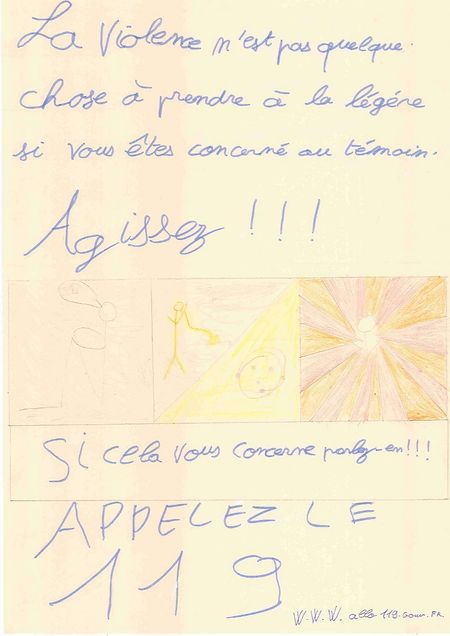 La violence n'est pas quelque
chose à prendre à la légère
si vous êtes concerné ou témoin.
Agissez !!!
Si cela vous concerne parlez-en!!!
APPELEZ LE
119
W.W.W. allo 119.Gouv.FR